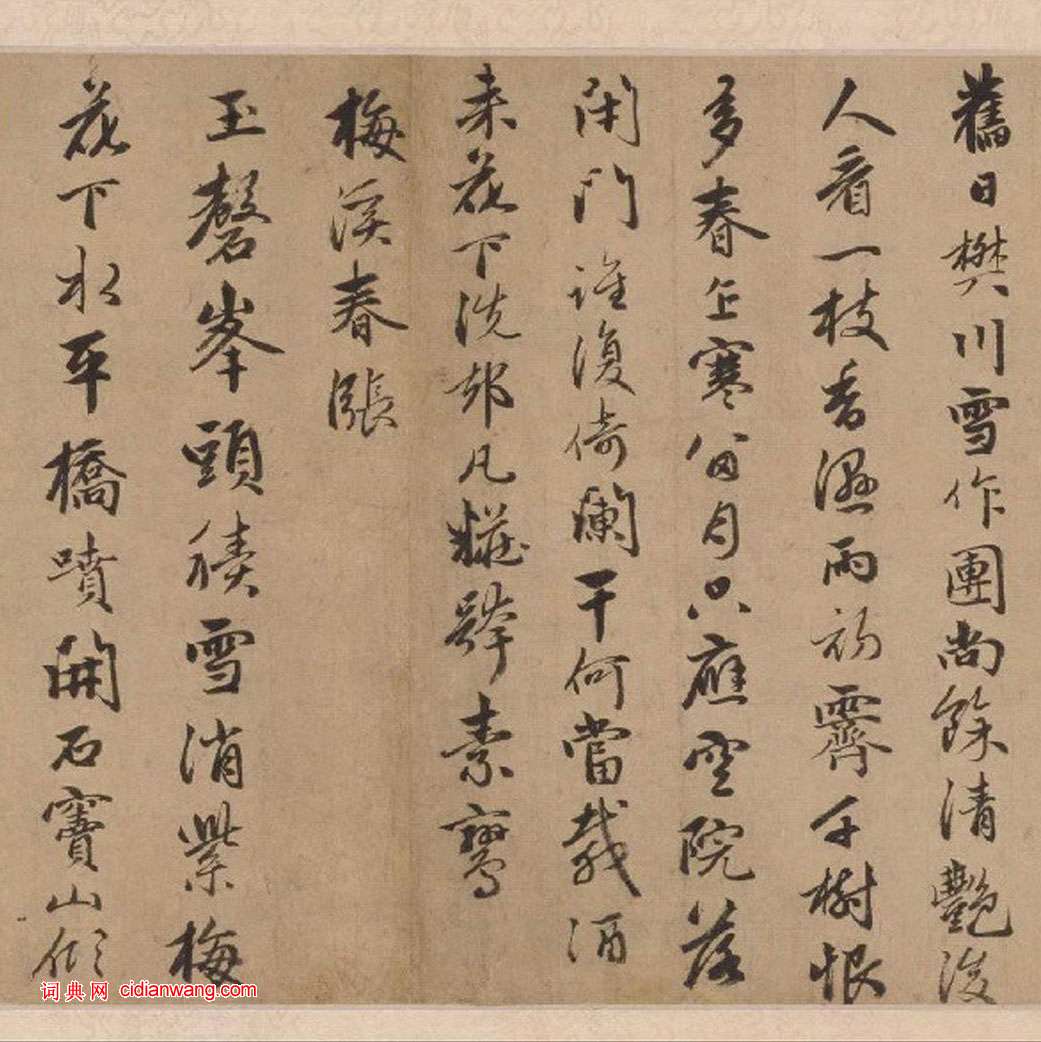 舊日樊川雪作團尚餘清艷後
人看一枝香濕雨初霽千樹恨
多春正寒留月只應空院落
閑門誰復倚闌干何當載酒
來花下洗却凡糚跨素鸞
梅溪春漲
玉磬峯頭積雪消紫梅
花下水平橋噴開石竇山傾
词典网 cidianwang.com